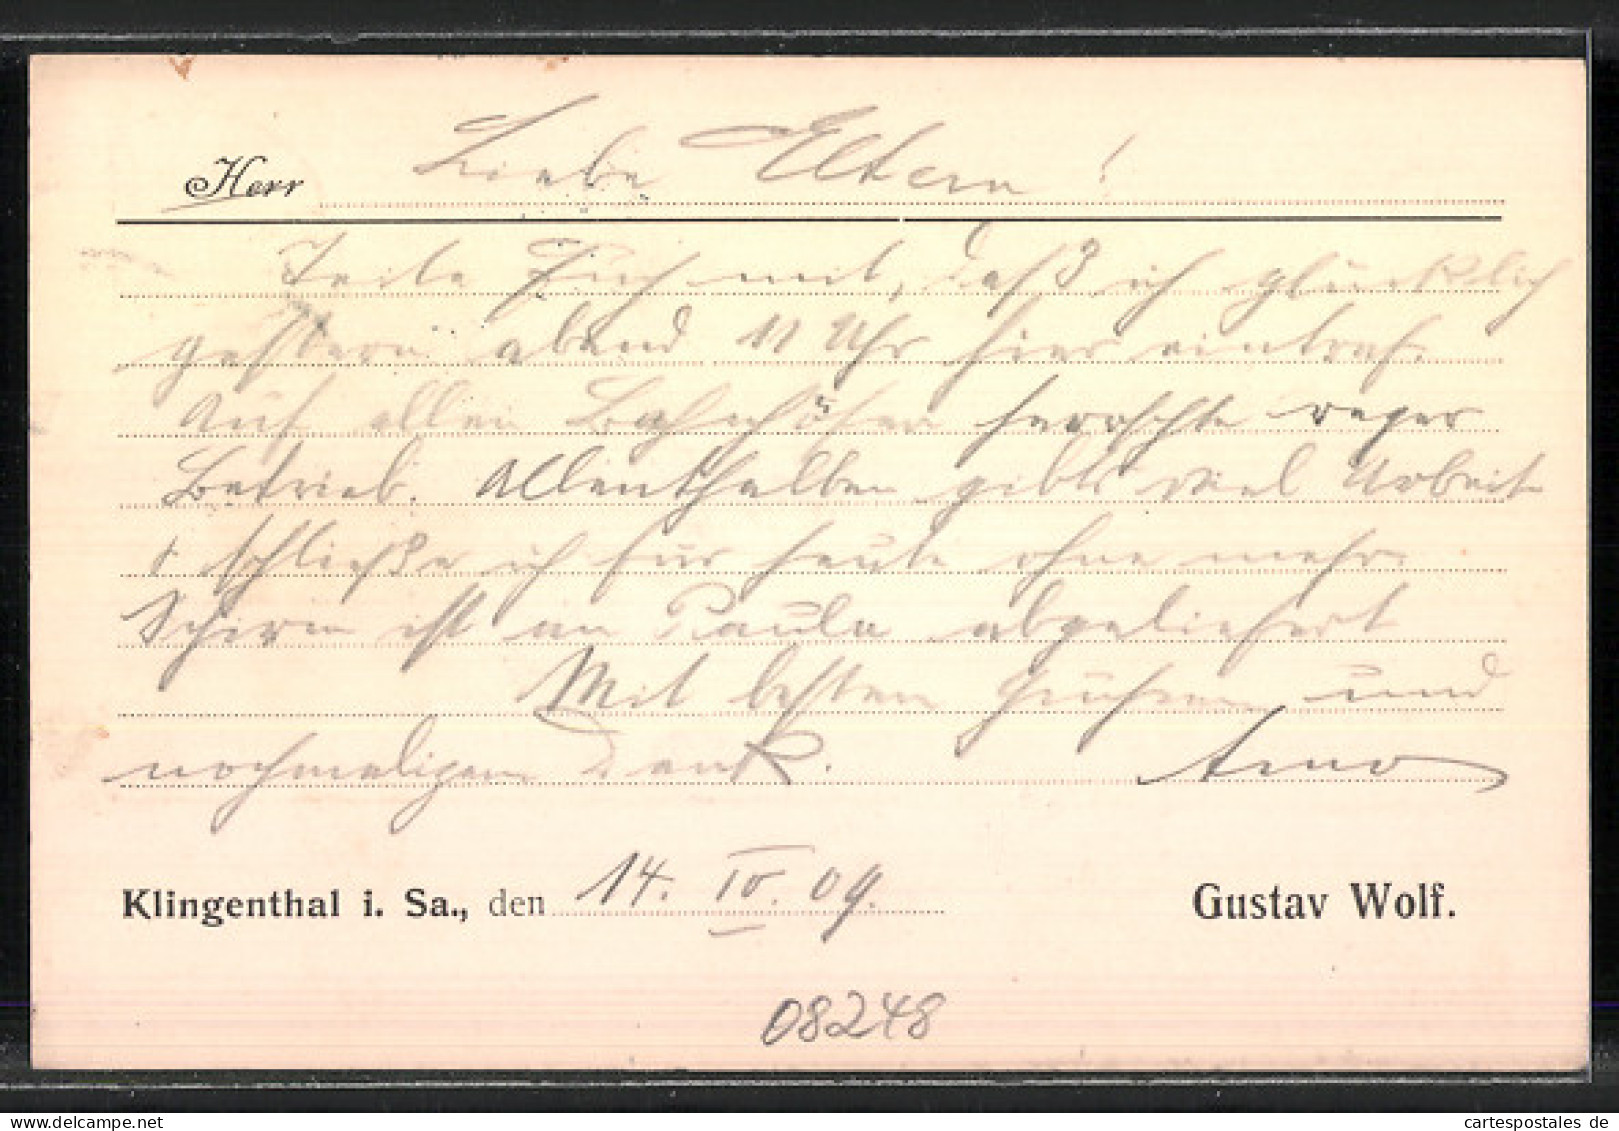 Herr Liebe Eltern!
Teile Euch mit, daß ich glücklich
gestern abend 11 Uhr hier eintraf.
Auf allen Bahnhöfen herrschte reger
Betrieb. Allenthalben gibts viel Arbeit
+ schließe ich für heute ohne mehr.
Schirm ist an Paula abgeliefert
Mit besten Grüßen und
nochmaligem Dank. Arno
Klingenthal i. Sa., den 14. IV. 09. Gustav Wolf.
08248
cartespostales de